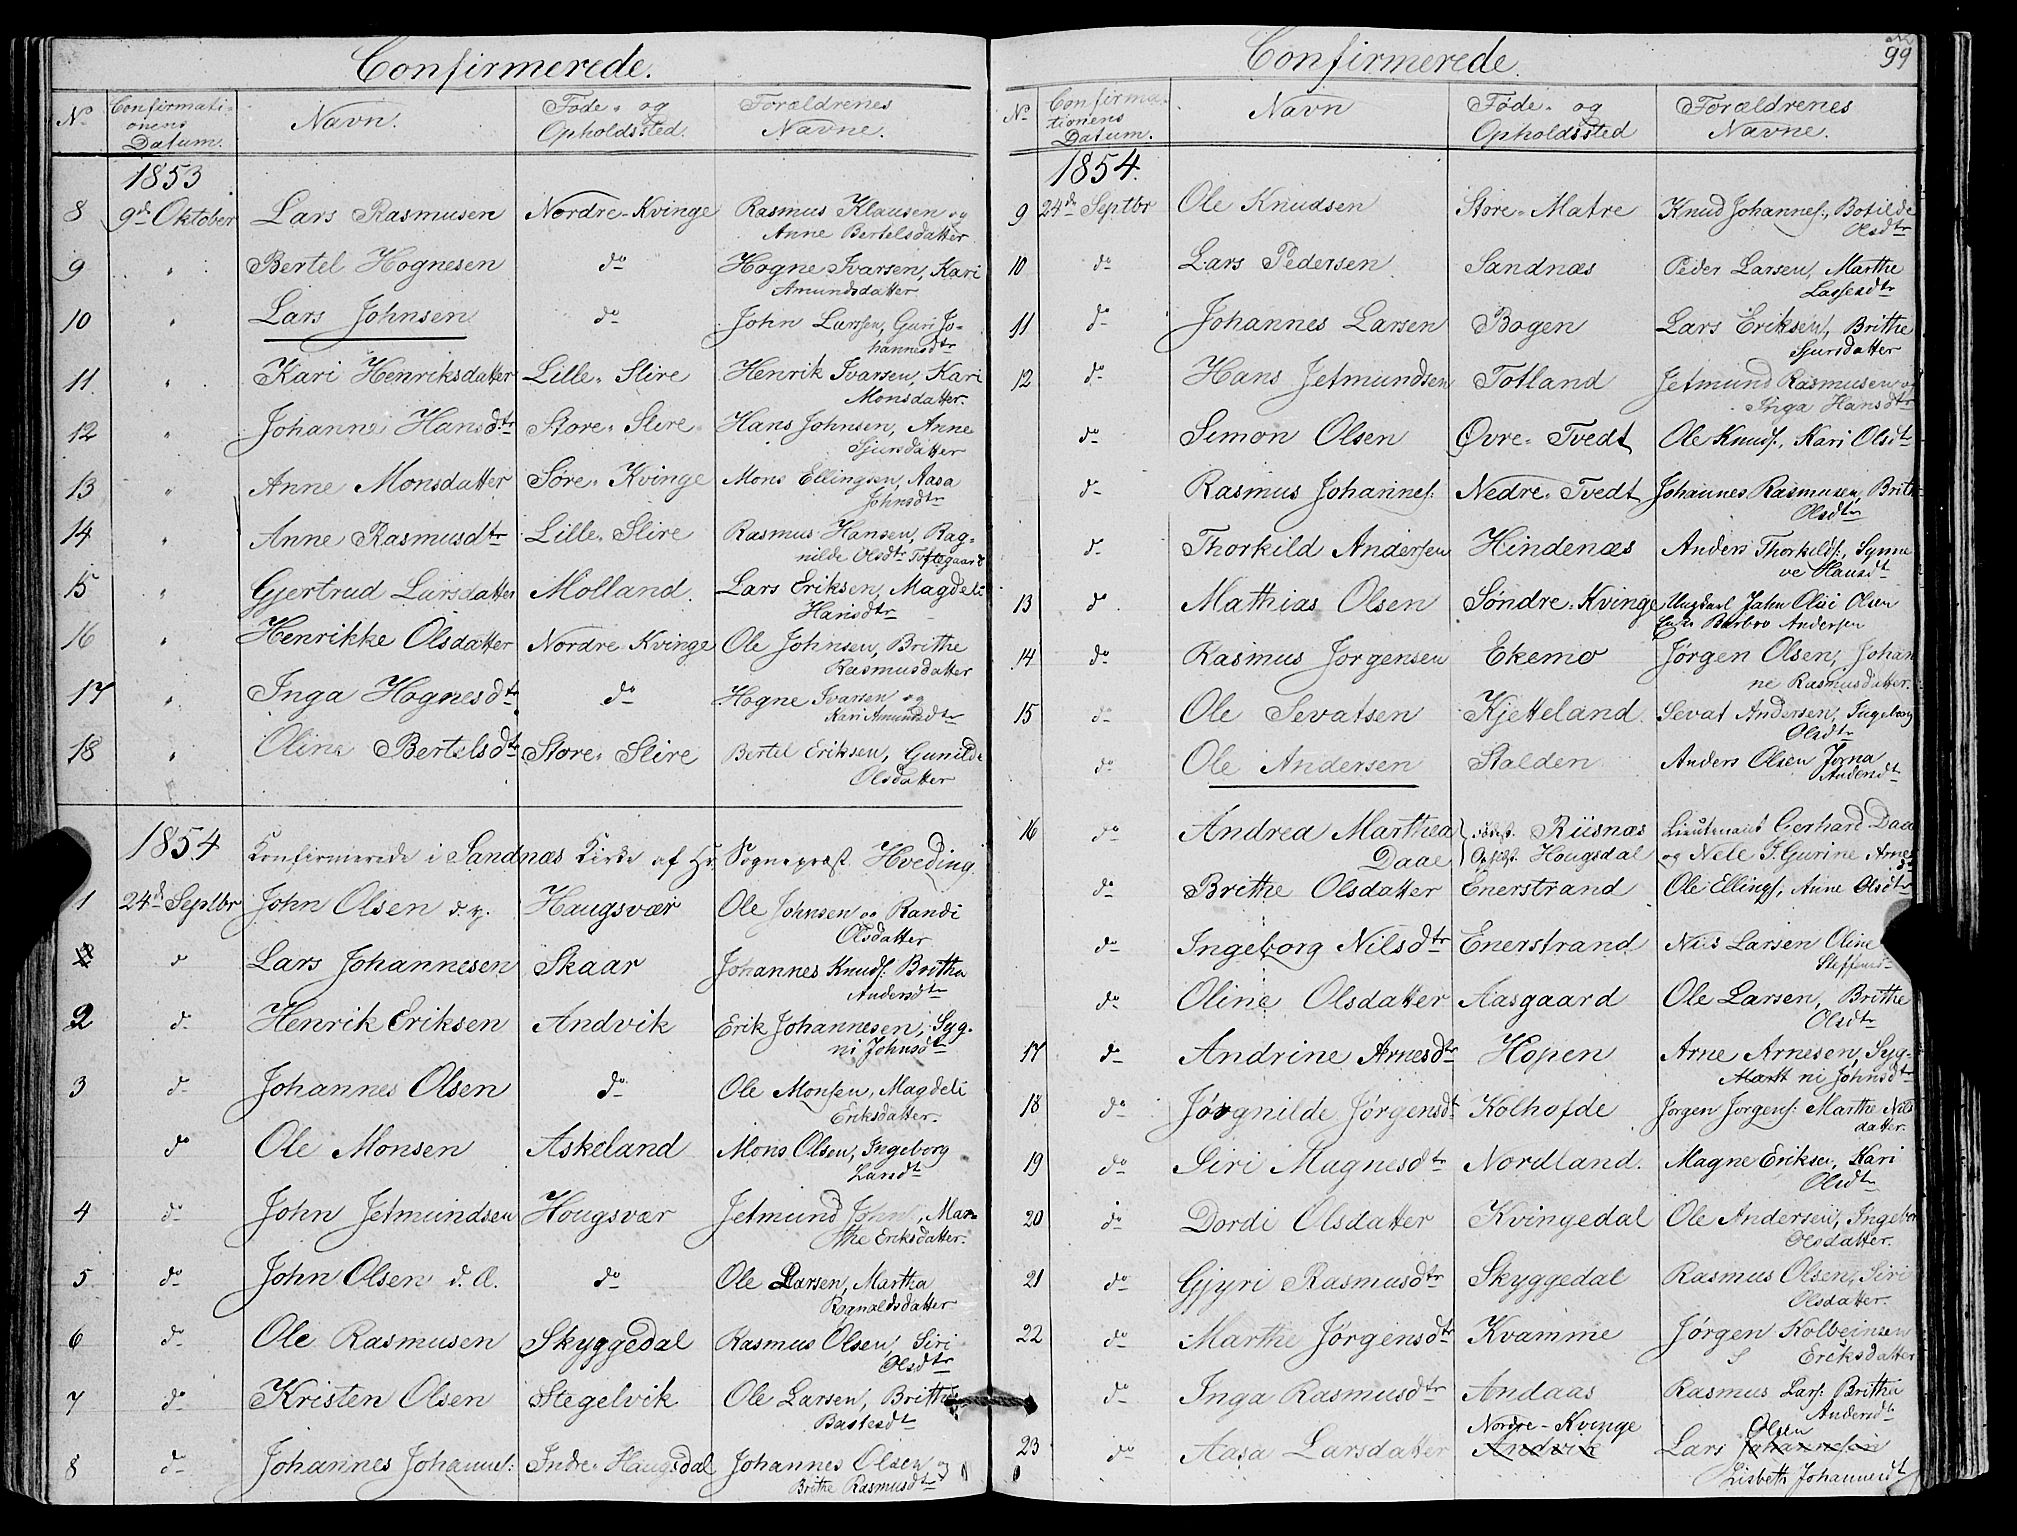 Confirmerede.
No Confirmationens Datum. Navn. Føde- og Opholdssted. Forældrenes Navne.
1853
8 9de Oktober Lars Rasmusen Nordre-Kvinge Rasmus Klausen og
Anne Bertelsdatter
9 " Bertel Hognesen do Hogne Ivarsen, Kari
Amundsdatter
10 " Lars Johnsen do John Larssen, Guri Jo-
hannesdtr
11. " Kari Henriksdatter Lille-Slire Henrik Ivarsen, Kari
Monsdatter.
12 " Johanne Hansdtr Store-Slire Hans Johnsen, Anne
Sjursdatter
13 " Anne Monsdatter Søre-Kvinge Mons Ellingsen, Aasa
Johnsdtr
14 " Anne Rasmusdtr Lille-Slire Rasmus Hansen, Rag-
nilde Olsdtr Toftegaard
15 " Gjertrud Larsdatter Molland Lars Eriksen, Magdeli
Hansdtr
16 " Henrikke Olsdatter Nordre Kvinge Ole Johnsen, Brithe
Rasmusdatter
17 " Inga Hognesdtr do Hogne Ivarsen og
Kari Amundsdtr
18 " Oline Bertelsdtr Store-Slire Bertel Eriksen, Gunilde
Olsdatter
1854 Konfirmerede i Sandnæs Kirke af Hr. Sognepræst Hveding.
1 24de Septbr John Olsen d.y. Haugsvær Ole Johnsen og Randi
Olsdatter
d Lars Johannesen Skaar Johannes Knuds: Britha
Andersdtr
2 d- Henrik Eriksen Andvik Erik Johannesen, Syg-
ni Johnsdtr
3 d- Johannes Olsen do Ole Monsen, Magdeli
Eriksdatter.
do Ole Monsen Askeland Mons Olsen, Ingeborg
Larsdt
4 do John Jetmundsen Hougsvær Jetmund John, Mar-
the Eriksdatter.
5 do John Olsen d. Æ. do Ole Larsen, Martha
Ragnaldsdatter
6 do Ole Rasmusen Skyggedal Rasmus Olsen, Siri
Olsdtr
7 do Kristen Olsen Stegelvik Ole Larsen, Brithe
Bastesdt
8 d- Johannes Johannes: Indre-Haugsdal Johannes Olsen og
Brithe Rasmusdtr
Confirmerede.
99
No Confirmationens Datum. Navn Føde- og Opholdssted Forældrenes Navne.
1854.
9 24de Septbr Ole Knudsen Store-Matre Knud Johannes:, Botilde
Olsdtr
10 do Lars Pedersen Sandnæs Peder Larsen, Marthe
Lassesdtr
11 do Johannes Larsen Bogen Lars Eriksen, Brithe
Sjursdatter
12 do Hans Jetmundsen Totland Jetmund Rasmusen og
Inga Hansdtr
do Simon Olsen Øvre-Tvedt Ole Knuds:, Kari Olsdtr
do Rasmus Johannes: Nedre-Tvedt Johannes Rasmusen, Brith
Olsdtr
do Thorkild Andersen Hindenæs Anders Thorkilds:, Synne
ve Hansdt
13 do Mathias Olsen Søndre-Kvinge Ungkarl Olsen
Barbro Andersen
14 do Rasmus Jorgensen Ekemo Jørgen Olsen, Johan
ne Rasmusdatter.
15 do Ole Sevatsen Kjetteland Sevat Andersen, Ingeborg
Olsdtr
do Ole Andersen Stalden Anders Olsen Jorna
Andersdt
16 do Andrea Marthea Daae Fødest. Riisnæs Lieutenant Gerhard Daae
Opholdst. Hougsdal og Nele J. Gurine Arnes
do Brithe Olsdatter Enerstrand Ole Ellings:, Anne Olsdtr
do Ingeborg Nilsdtr Enerstrand Nils Larsen Oline
Steffensd
do Oline Olsdatter Aasgaard Ole Larsen, Brithe
Olsdtr
17 do Andrine Arnesdtr Hopen Arne Arnesen, Syg-
Martt ni Johnsdtr
18 do Jørgnilde Jørgensdt Kolhofde Jørgen Jorgens: Marthe Nils
datter.
19 do Siri Magnesdtr Nordland. Magne Eriksen, Kari
Olsdtr
20 do Dordi Olsdatter Kvingedal Ole Andersen, Ingebor
Olsdatter.
21 do Gjyri Rasmusdtr Skyggedal Rasmus Olsen, Siri
Olsdatter.
22 do Marthe Jørgensdtr Kvamme Jørgen Kolbeinsen
S Eriksdatter
do Inga Rasmusdtr Andaas Rasmus Lars: Britha
Andersdt
23 do Aasa Larsdatter Nordre-Kvinge Andvik Lars Olsen Johannesen
Lisbeth Johannesdt